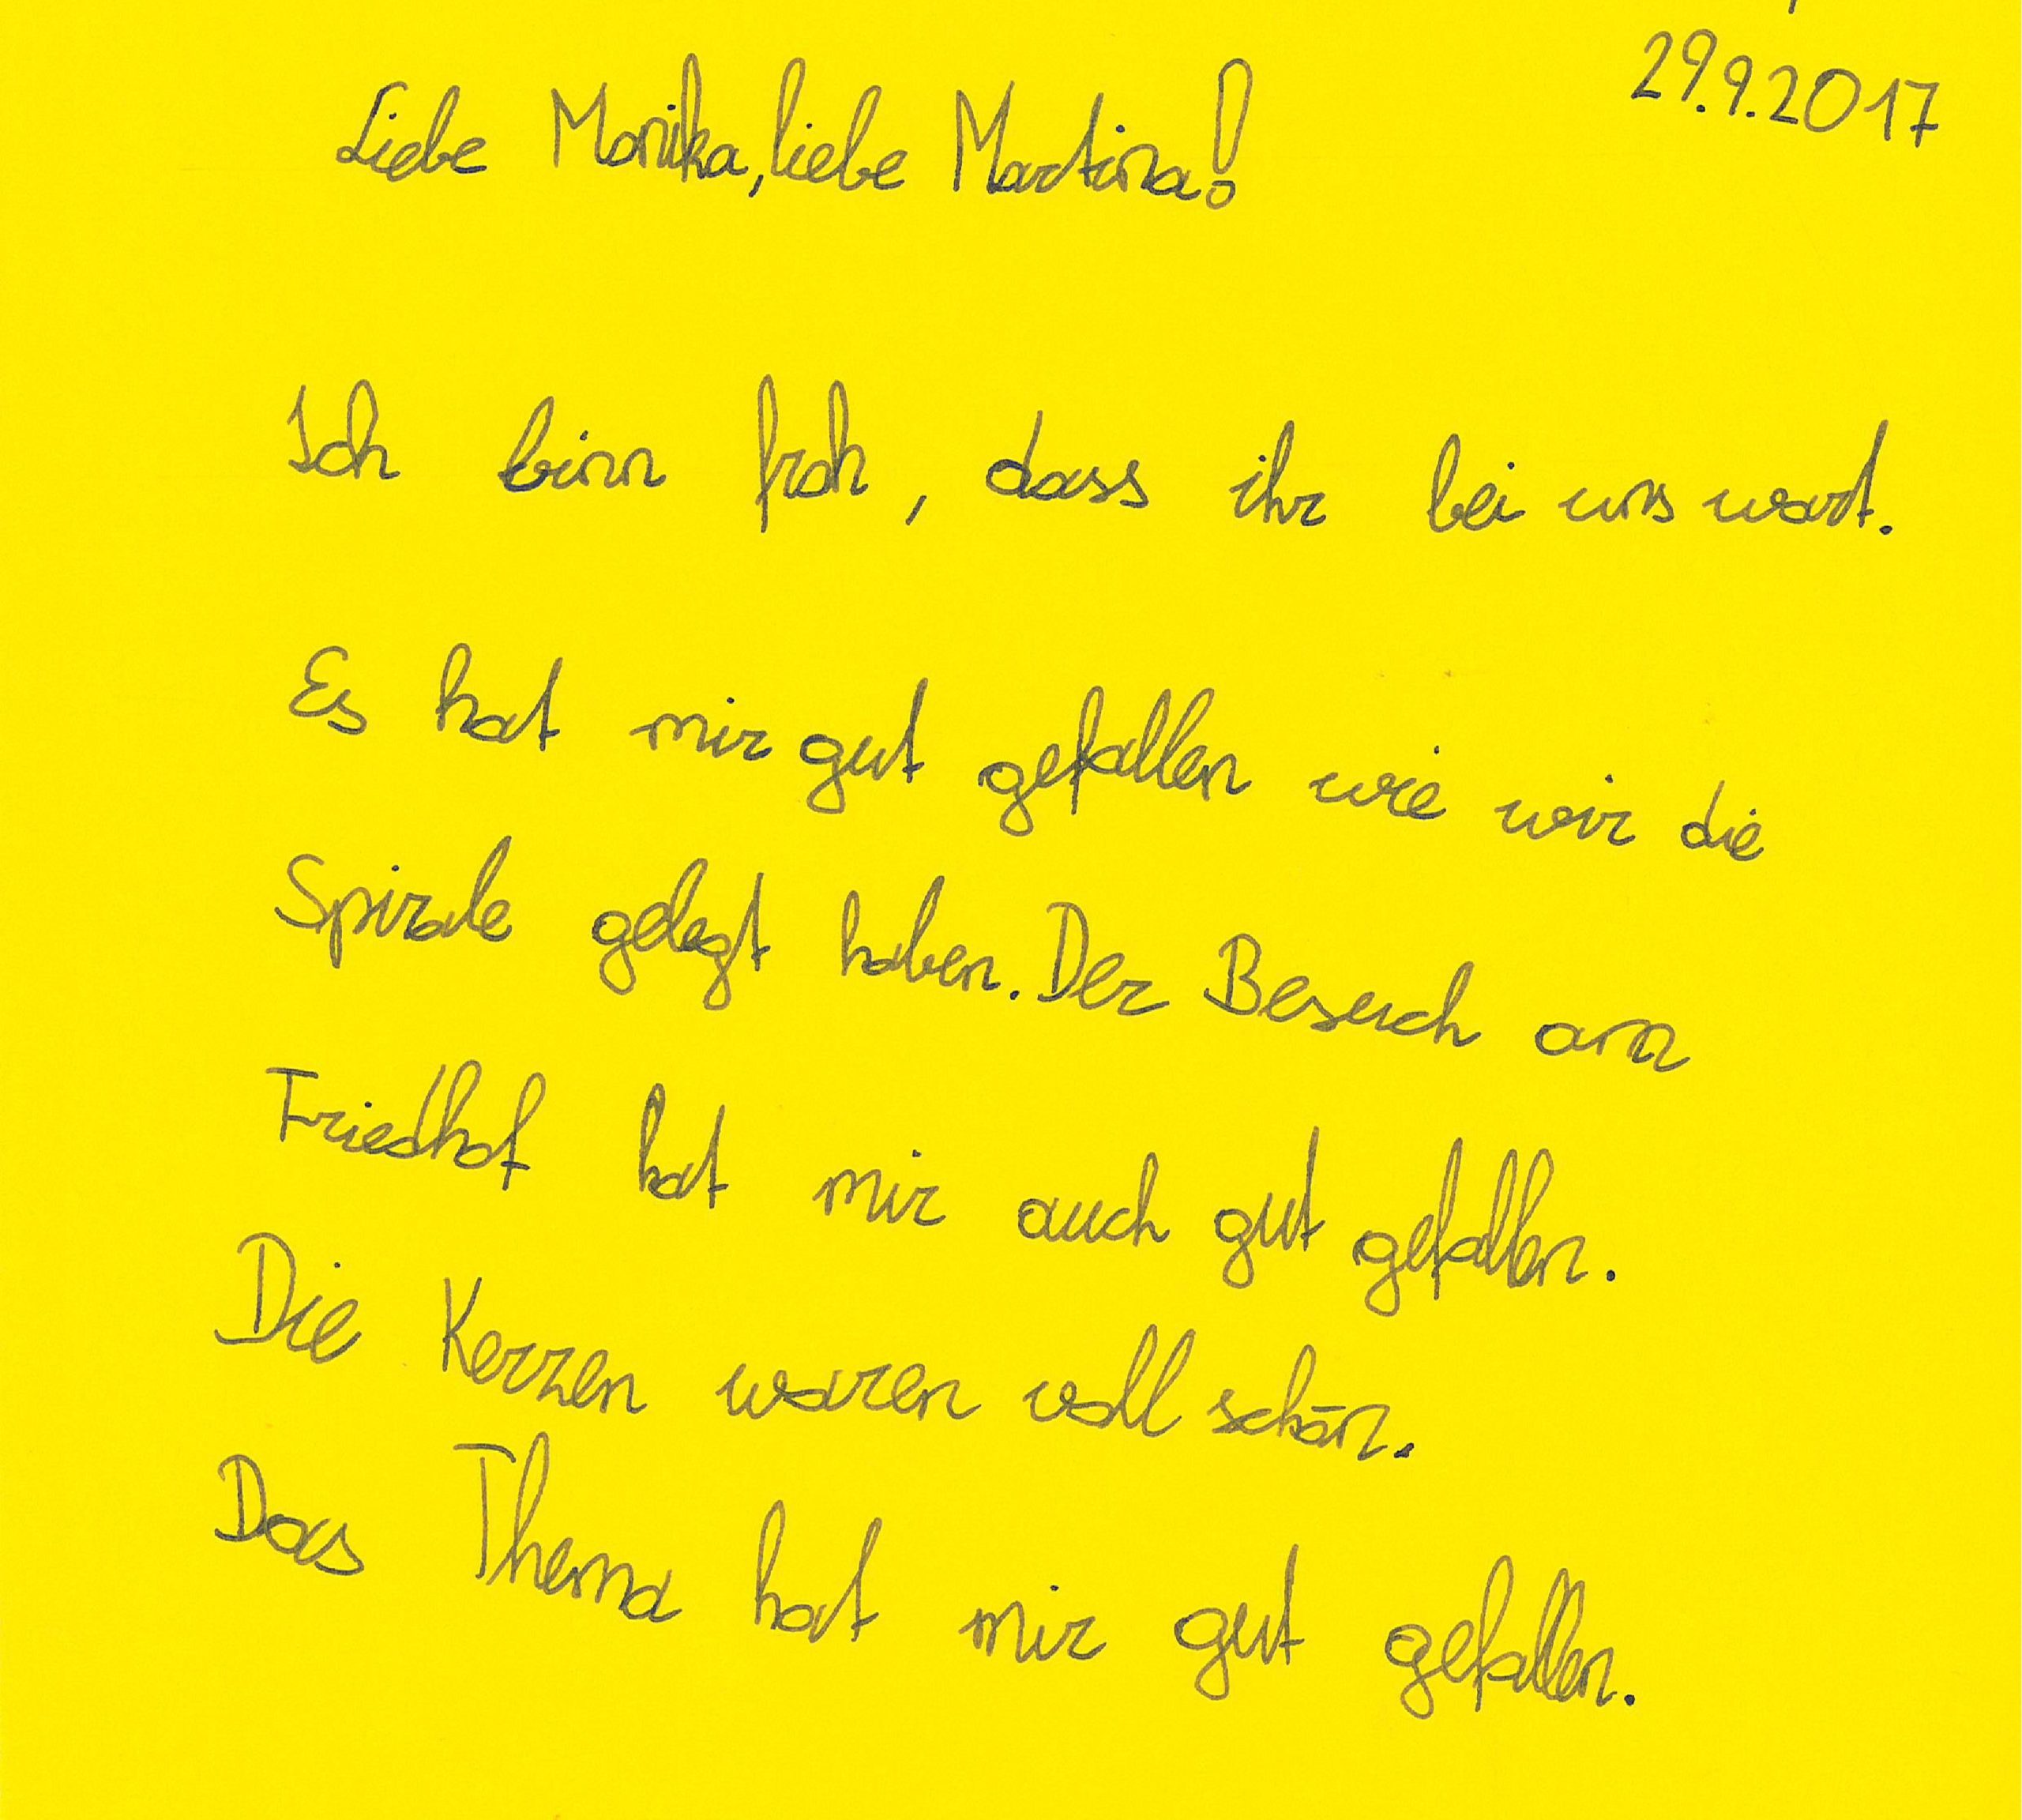 29.9.2017
Liebe Monika, liebe Martina!
Ich binn froh, dass ihr bei uns wart.
Es hat mir gut gefallen wie wir die
Spirale gelegt haben. Der Besuch am
Friedhof hat mir auch gut gefallen.
Die Kerzen waren voll schön.
Das Thema hat mir gut gefallen.